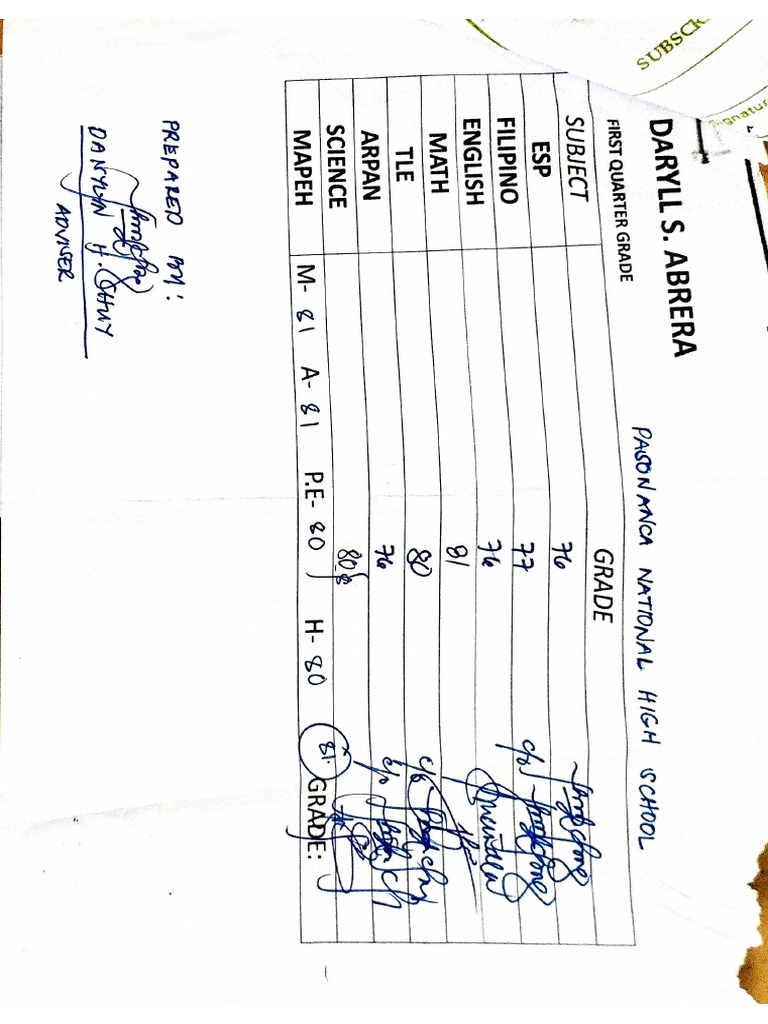 SUBSCR
Signatur
DARYLL S. ABRERA
PASONANCA NATIONAL HIGH SCHOOL
FIRST QUARTER GRADE
SUBJECT GRADE
ESP 76
FILIPINO 77 c/o
ENGLISH 76
MATH 81
TLE 80 c/o
ARPAN 76 c/o
SCIENCE 80
MAPEH M- 81 A- 81 P.E- 80 H- 80 81 GRADE:
PREPARED BY:
DANYLYN H. CHUY
ADVISER